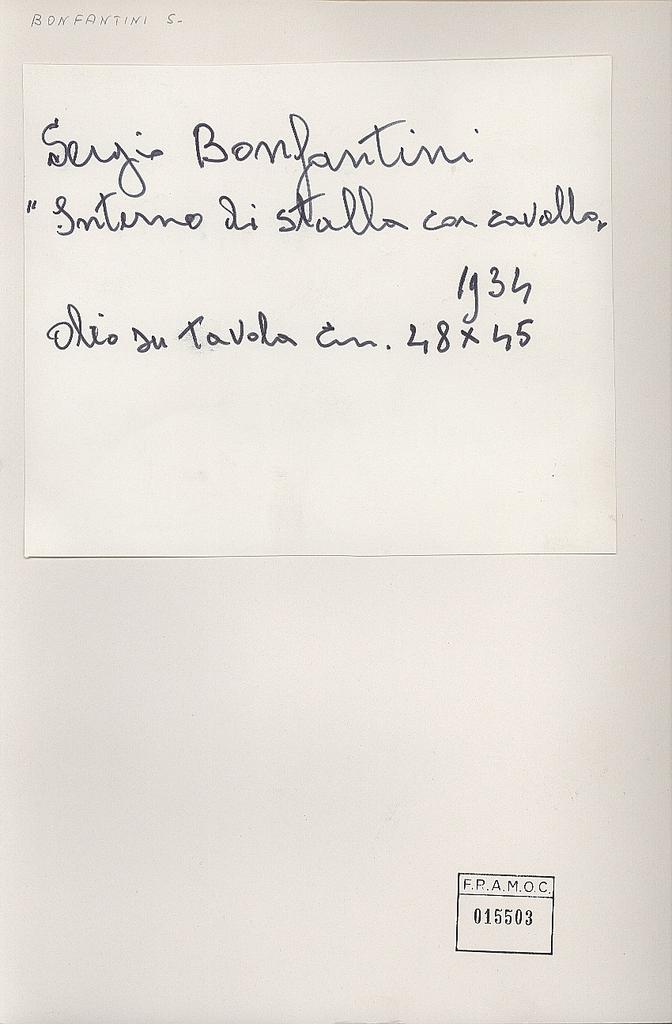 BONFANTINI S-
Sergio Bonfantini
"Interno di stalla con cavallo"
1934
Olio su tavola cm. 48 x 45
F.R.A.M.O.C.
015503